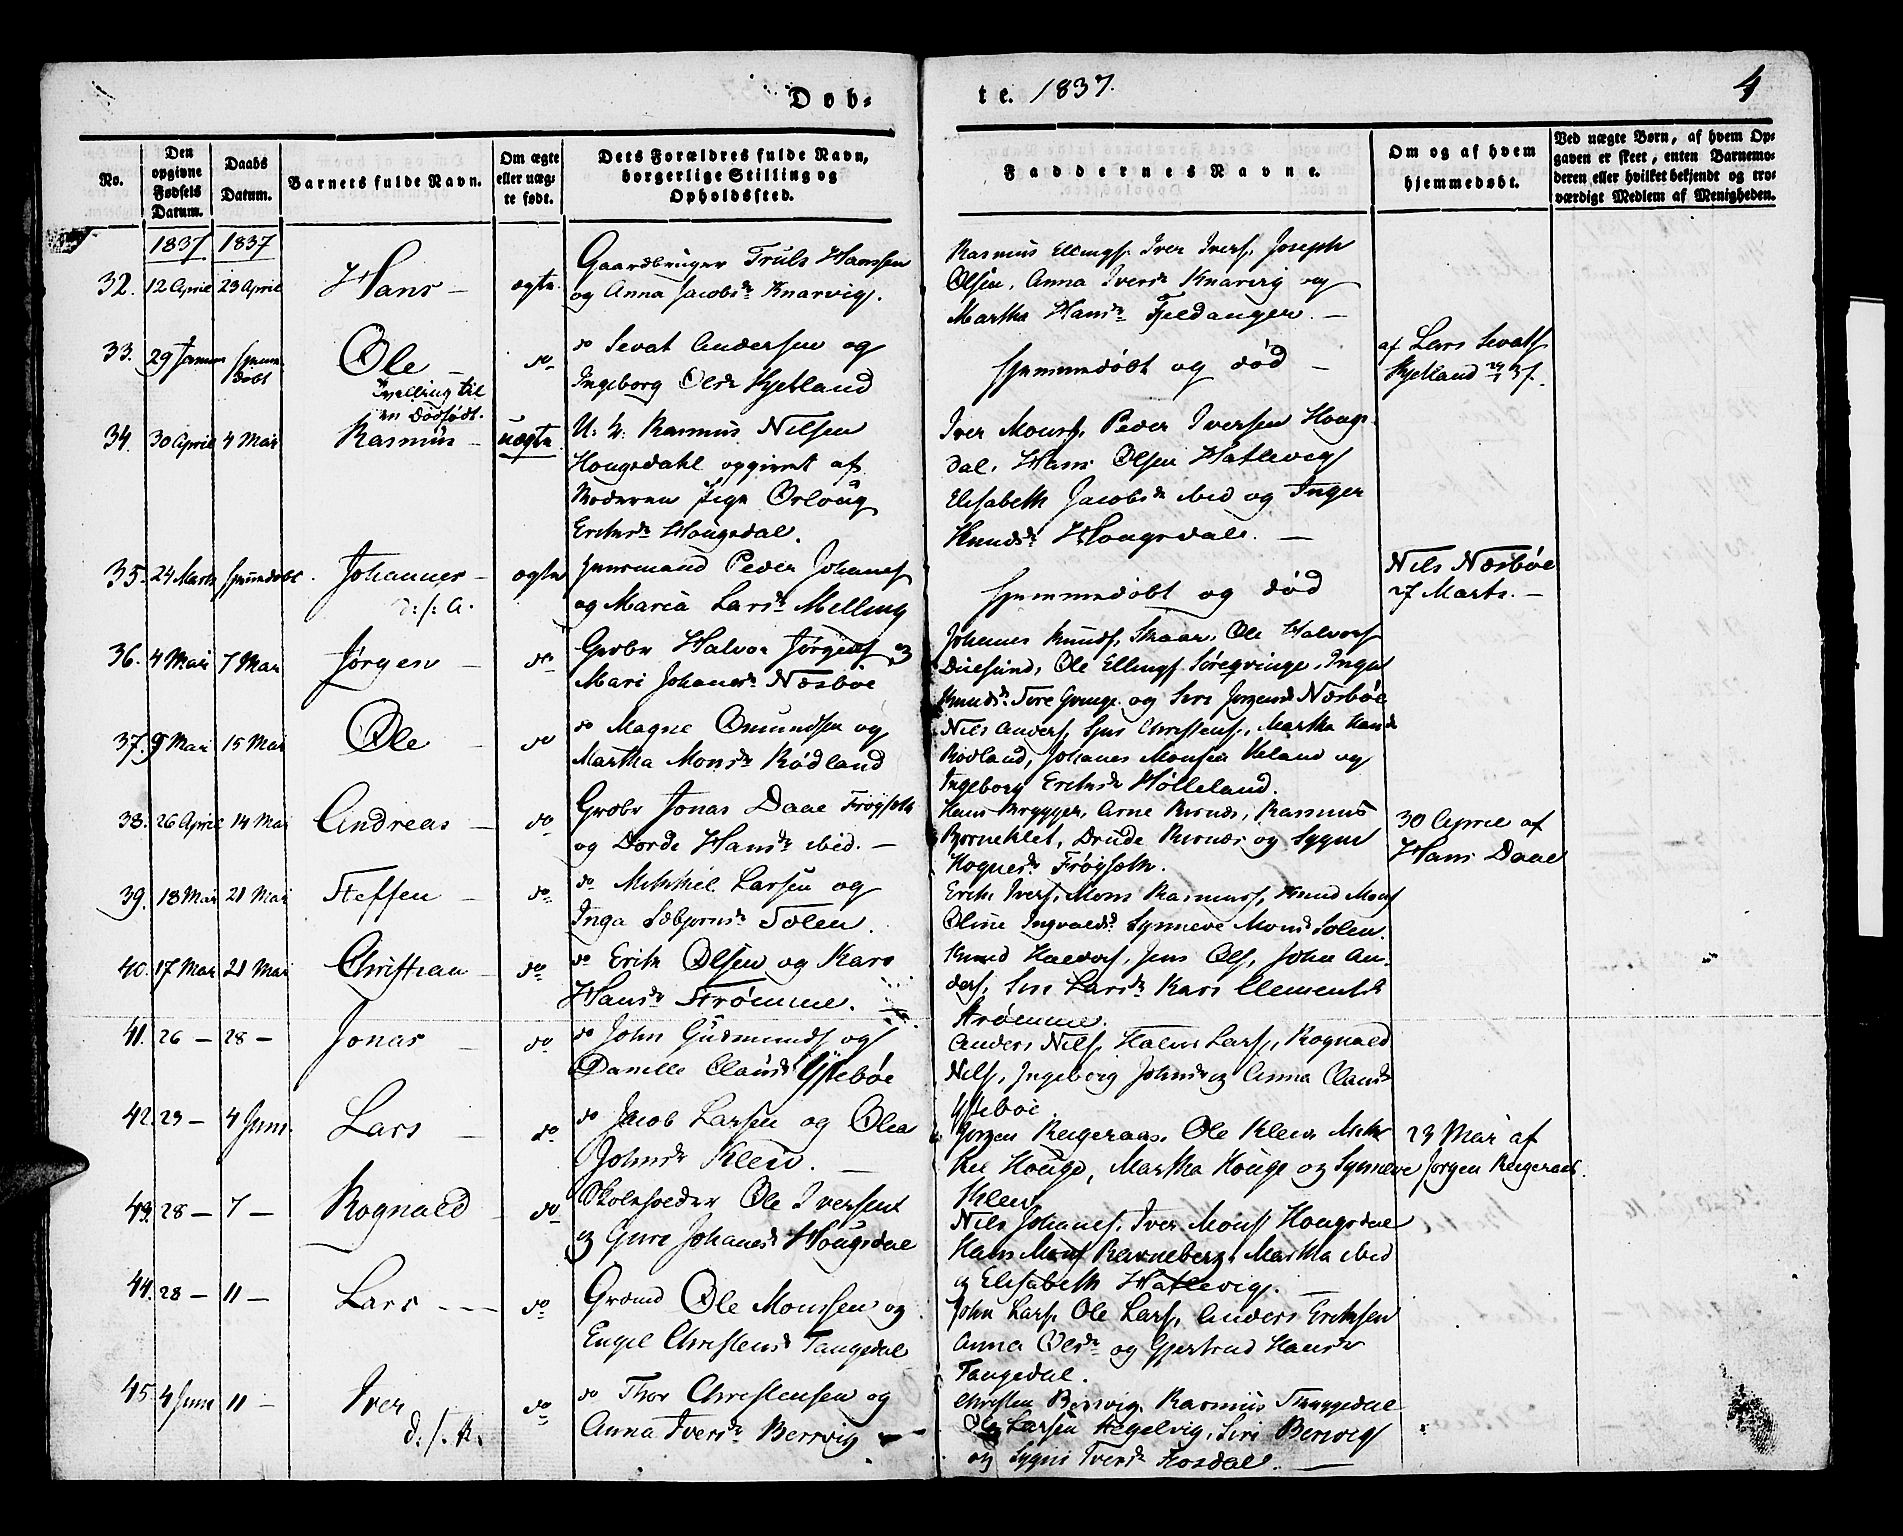 Døb-
te. 1837.
4
No.
Den opgivne Fødsels Datum.
Daabs Datum.
Barnets fulde Navn.
Om ægte eller uæg-
te født.
Dets Forældres fulde Navn,
borgerlige Stilling og
Opholdssted.
Faddernes Navne.
Om og af hvem
hjemmedøbt.
Ved uægte Børn, af hvem Op-
gaven er skeet, enten Barnemo-
deren eller hvilket bekjendt og tro-
værdigt Medlem af Menigheden.
1837 1837
32. 12 April 23 April Hans ægte
Gaardbruger Truls Hanssen
og Anna Jacobsdr Knarvig.
Rasmus Ellings. Iver Ivers. Joseph
Olsen, Anna Iversdr Knarvig og
Martha Hansdr Fjeldanger.
33. 29 Januar hjemmedøbt Ole do
Tvilling til
en dødfødt.
do Sevat Andersen og
Ingeborg Olsdr Hjetland
hjemmedøbt og død
af Lars Sevats.
Hjelland
34. 30 April 4 Mai Rasmus uægte
U: K: Rasmus Nilsen
Hougsdahl opgivet af
Moderen Pige Orloug
Eriksdr Hougsdal.
Iver Mons. Peder Iversen Hougs-
dal, Hans Olsen Hatlevig
Elisabeth Jacobsdr ibid og Inger
Knudsdr Hougsdal.
35. 24 Marts hjemmedøbt. Johannes ægte
d:f: A.
Huusmand Peder Johanes.
og Maria Larsdr Melling
hjemmedøbt og død
Nils Næsbøe
27 Marts.
36. 4 Mai 7 Mai Jørgen do
Grbr Halvor Jørgens. og
Mari Johanesdr Næsbøe
Johannes Knuds. Skaar, Ole Halvors.
Duesund, Ole Ellings. Søregvinge, Inger
Knudsdr Søre Gvinge og Siri Jørgensdr Næsbøe
37. 9 Mai 15 Mai Ole do
do Magne Omundsen og
Martha Monsdr Rødland
Nils Anders. Christens., Martha Hansdr
Rødland, Johanes Monsen og
Ingeborg Eriksdr Hølleland.
38. 26 April 14 Mai Andreas do
Grbr Jonas Daae Frøyseth
og Dorde Hansdr ibid.
Hans Brygger, Arne Risnæs, Rasmus
Drude Risnæs og Sygni
Rognesdr Frøyseth.
30 April af
Hans Daae
39. 18 Mai 21 Mai Steffen do
do Mikkel Larsen og
Inga Sæbjornsdr Solen.
Erik Ivers. Mons Rasmus., Knud Mons.
Oline Ingvaldsdr Synneve Monsdr Solen.
40. 17 Mai 21 Mai Christian do
do Erik Olsen og Kari
Hansdr Strømme.
Knud Haldors. Jens Ols., John An-
ders. Siri Larsdr Kari Clementsdr
Strømme.
41. 26 — 28 — Jonas do
do John Gudmunds. og
Danelle Clausdr Ystebøe
Anders Nils. Halvor Lars., Rognald
Nils., Ingeborg Johnsdr og Anna Clausdr
Ystebøe.
42. 23 — 4 Juni. Lars do
do Jacob Larsen og Olea
Johnsdr Kleiv.
Jørgen Reigeraas, Ole Kleiv, Mik-
kel Houge, Martha Houge og Synneve
Kleiv
23 Mai af
Jørgen Reigeraas.
43. 28 — 7 — Rognald do
Skoleholder Ole Iversen
og Guri Johanesdr Hougsdal
Nils Johanes. Iver Mons. Hougsdal
Hans Mons. Ravneberg, Martha ibid
og Elisabeth Hatlevig.
44. 28 — 11 — Lars do
Grmd Ole Monssen og
Engel Christensdr Tangedal
John Lars. Ole Lars., Anders Eriksen
Anna Olsdr og Gjertrud Hansdr
Tangedal.
45. 4 Juni 11 — Iver do
d:f: K.
do Thor Christensen og
Anna Iversdr Berrvig
Christen Berrvig, Rasmus
Larsen Hegelvig, Siri Berrvig
og Sygni Iversdr